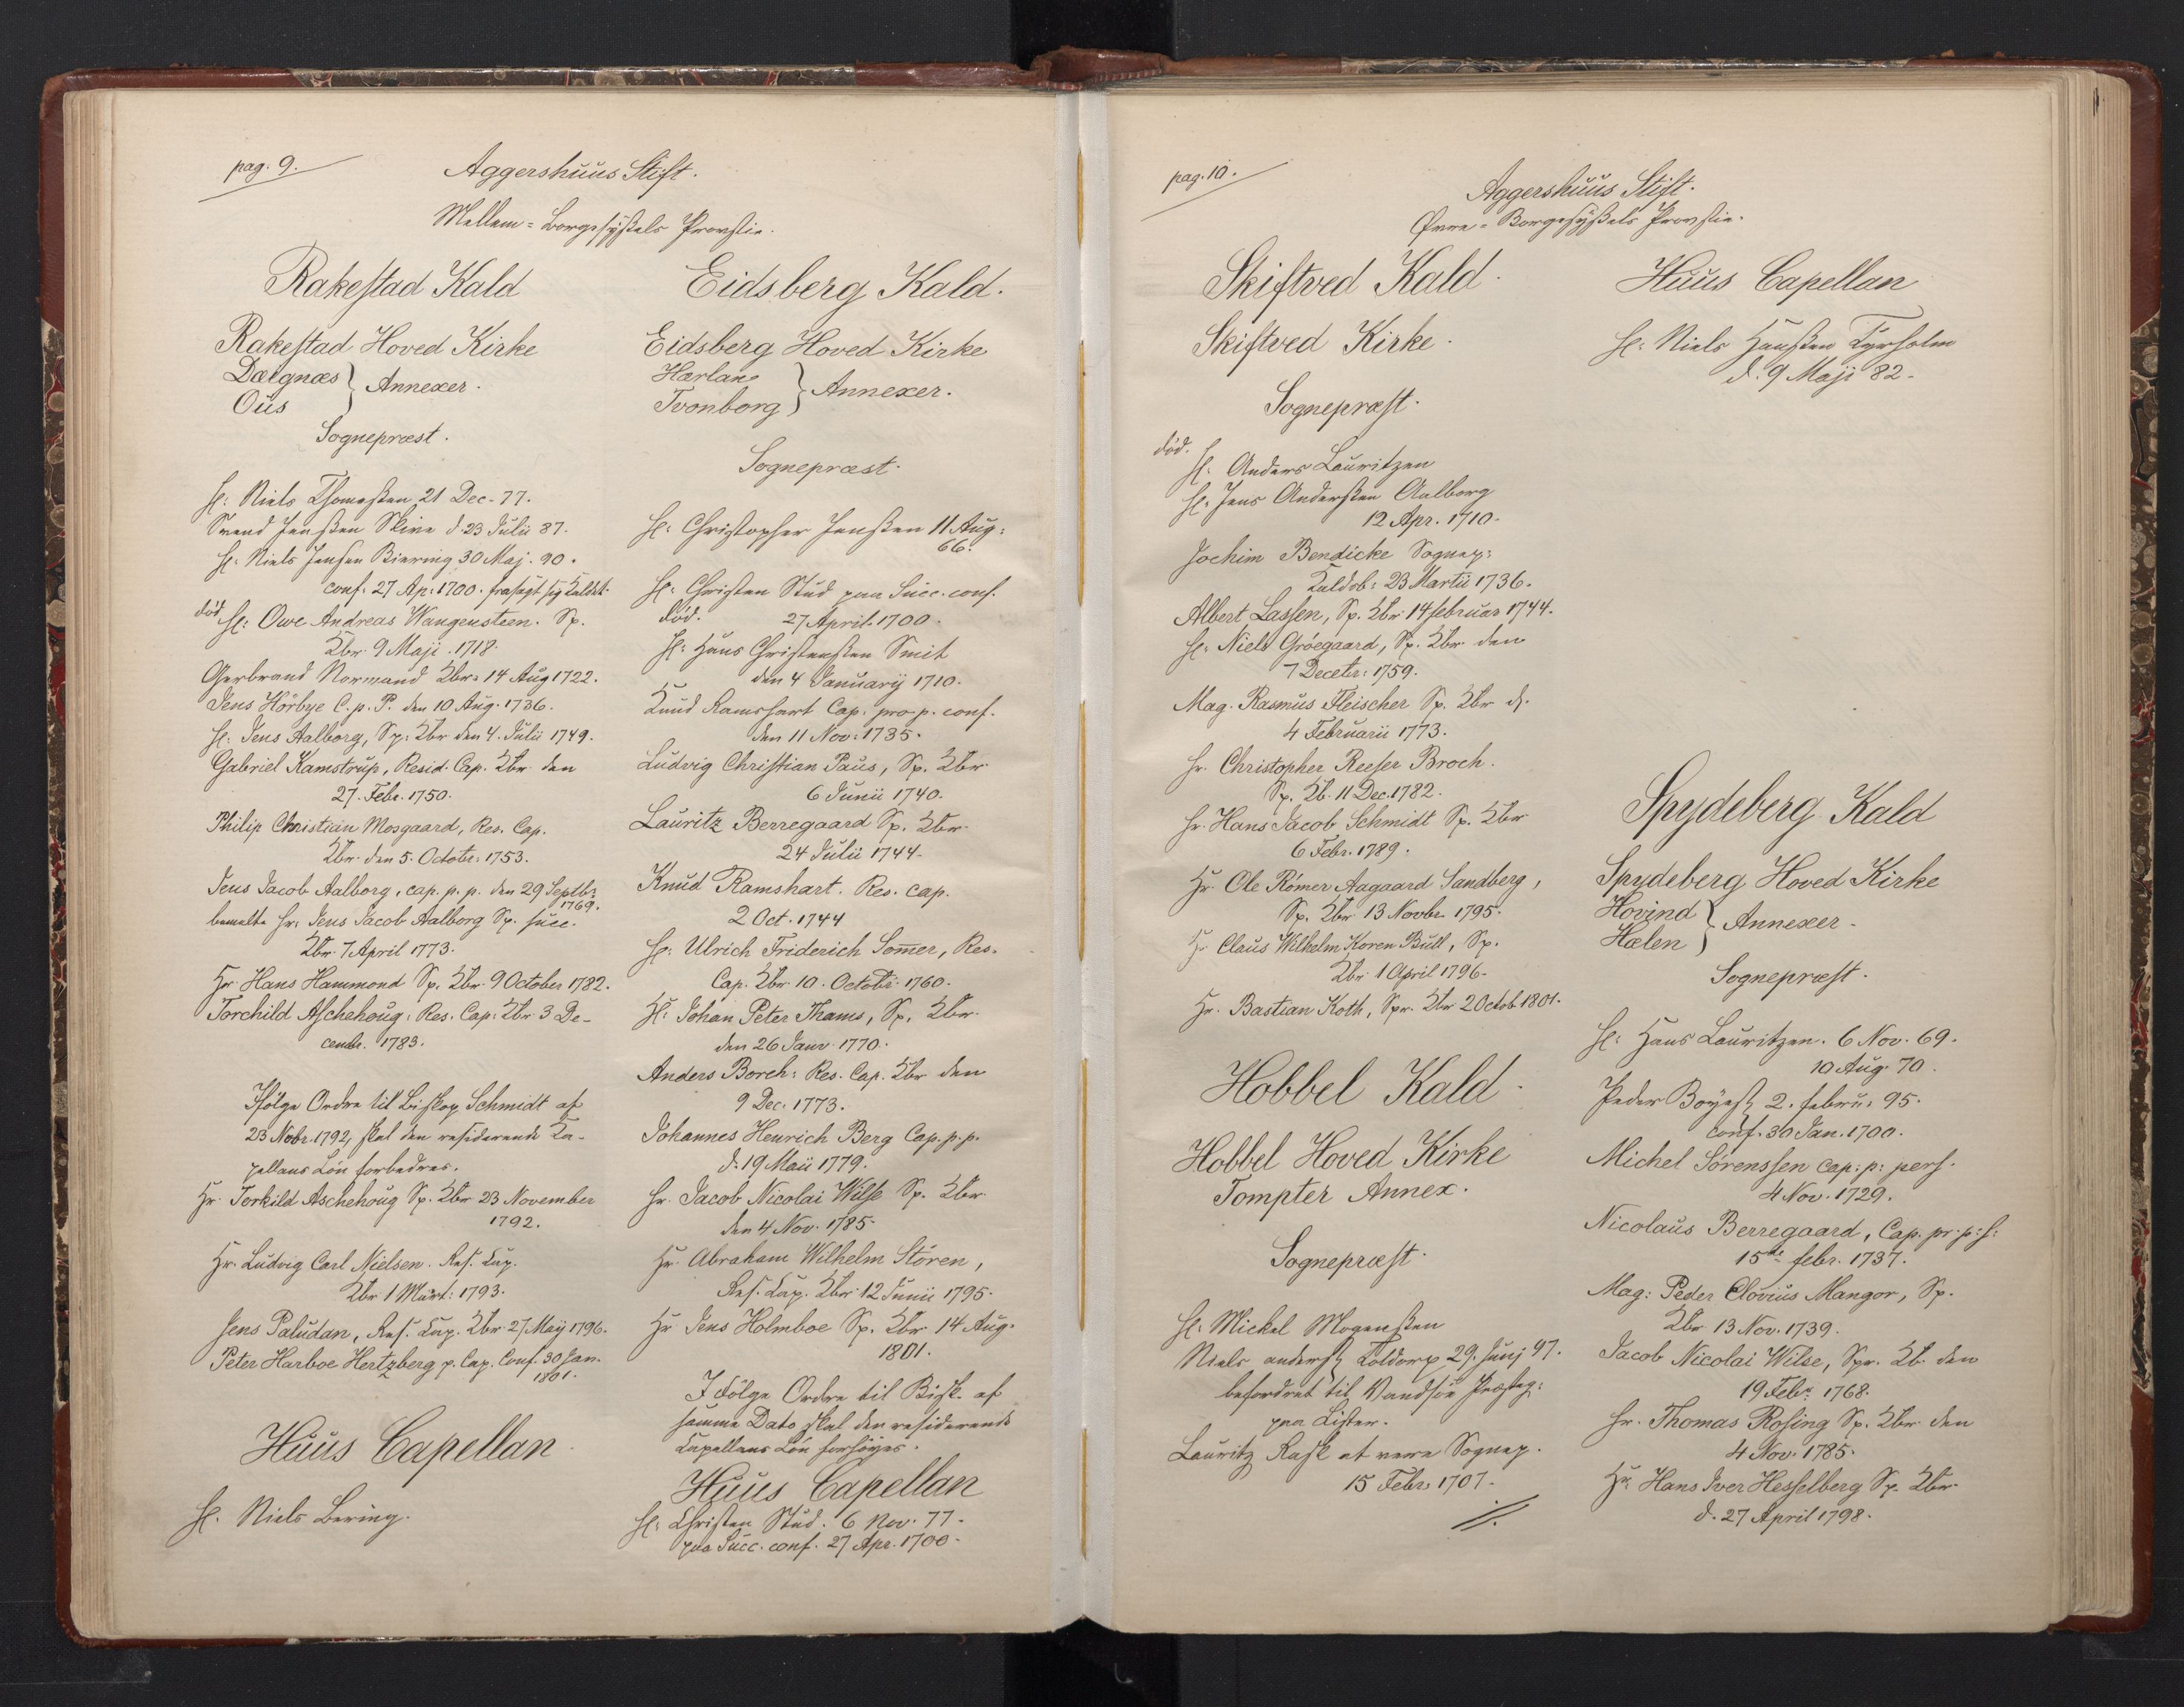 pag. 9.
Aggershuus Stift.
Mellem-Borgesyssels Provstie.
Rakestad Kald
Rakestad Hoved Kirke
Dægnæs } Annexer.
Ous
Sognepræst.
H: Niels Thomessen 21 Dec. 77.
Svend Jenssen Skive d. 23 Julii 87.
H: Niels Jensen Biering 30 Maj. 90.
conf: 27 Ap: 1700. frasagt sig Kaldet.
død H: Owe Andreas Wangensteen. Sp.
Kbr. 9 Maji 1718.
Gerbrand Normand Kbr. 14 Aug 1722.
Jens Hörbye C. p. P. den 10 Aug. 1736.
H: Jens Aalborg, Sp. Kbr den 4. Julii 1749.
Gabriel Kamstrup, Resid. Cap. Kbr. den
27. Febr. 1750.
Philip Christian Mosgaard, Res. Cap.
Kbr. den 5. Octobr: 1753.
Jens Jacob Aalborg, cap. p. p. den 29 Septbr:
1769.
bemelte Hr. Jens Jacob Aalborg Sp. succ.
Kbr. 7 April 1773.
Hr Hans Hammond Sp. Kbr. 9 October 1782.
Torchild Aschehoug: Res. Cap: Kbr 3 De-
cembr. 1783.
Ifølge Ordre til Biskop Schmidt af
23 Nobr. 1792, skal den residerende Ca-
pellans Løn forbedres.
Hr. Torkild Aschehoug Sp. Kbr 23 November
1792.
Hr. Ludvig Carl Nielsen. Res. Cap.
Kbr 1 Mart: 1793.
Jens Paludan, Res. Cap. Kbr 27 Maij 1796.
Peter Harboe Hertzberg p. Cap. Conf. 30 Jan.
1801.
Huus Capellan
H. Niels Bering.
Eidsberg Kald.
Eidsberg Hoved Kirke
Hærland } Annexer.
Tronborg
Sognepræst.
H: Christopher Jenssen 11 Aug:
66.
H: Christen Stud paa Succ. conf.
død. 27 April 1700.
H: Hans Christenssen Smit
den 4 Januarij 1710.
Knud Ramshart Cap: pro p. conf.
den 11 Nov: 1735.
Ludvig Christian Paus, Sp. Kbr.
6 Junii 1740.
Lauritz Berregaard Sp. Kbr.
24 Julii 1744.
Knud Ramshart. Res. cap.
2 Oct. 1744
Hr: Ulrich Friderich Som̄er, Res.
Cap. Kbr. 10. Octobr: 1760.
H: Johan Peter Thams, Sp. Kbr.
den 26 Janv. 1770.
Anders Borch: Res. Cap. Kbr den
9 Dec. 1773.
Johannes Henrich Berg Cap. p. p.
d. 19 Maii 1779.
Hr. Jacob Nicolai Wilse Sp. Kbr.
den 4 Nov. 1785.
Hr. Abraham Wilhelm Stören,
Res. Cap. Kbr 12 Junii 1795.
Hr Jens Holmboe Sp. Kbr 14 Aug.
1801.
I følge Ordre til Bisk. af
samme Dato skal den residerende
Capellans Løn forhøyes.
Huus Capellan
H: Christen Stud. 6 Nov. 77.
paa Succ. conf. 27 Apr. 1700.
pag. 10.
Aggershuus Stift.
Øvre-Borgesyssels Provstie.
Skiftved Kald.
Skiftved Kirke.
Sognepræst.
død. H. Anders Lauritzen
H: Jens Anderssen Aalborg
12 Apr. 1710.
Jochim Bendicke Sognep:
Kaldsb: 23 Martii 1736.
Albert Lassen, Sp. Kbr 14 februar 1744.
H: Niels Gröegaard, Sp. Kbr den
7 Decebr: 1759.
Mag. Rasmus Fleischer Sp. Kbr d.
4 Februarii 1773.
Hr. Christopher Reeser Broch.
Sp. Kb. 11 Dec. 1782.
Hr. Hans Jacob Schmidt Sp. Kbr
6 Febr. 1789.
Hr. Ole Römer Aagaard Sandberg,
Sp. Kbr 13 Novbr 1795.
Hr Claus Wilhelm Koren Bull, Sp.
Kbr. 1 April 1796.
Hr. Bastian Koth, Spr. Kbr 2 Octob 1801.
Hobbel Kald.
Hobbel Hoved Kirke
Tompter Annex.
Sognepræst.
H: Mickel Mogenssen
Niels anderss Toldorp 29. Junj 97.
befordret til Vandsöe Præsteg:
paa Lister.
Lauritz Rask at være Sognep.
15 Febr. 1707.
Huus Capellan
H: Niels Hanssen Tyrholm
d. 9 Maji 82.
Spydeberg Kald
Spydeberg Hoved Kirke
Hovind } Annexer.
Hælen
Sognepræst.
H: Hans Lauritzen. 6 Nov. 69.
10 Aug. 70.
Peder Böyess 2. febru: 95.
conf. 30 Jan. 1700.
Michel Sörenssen cap: p: pers.
4 Nov. 1729.
Nicolaus Berregaard, Cap. pr. p. s:
15de febr. 1737.
Mag: Peder Clovius Mangor, Sp.
Kbr 13 Nov. 1739.
Jacob Nicolai Wilse, Spr. Kb. den
19 Febr. 1768.
Hr. Thomas Rosing Sp. Kbr den
4 Nov. 1785.
Hr. Hans Iver Hesselberg Sp. Kbr.
d. 27 April 1798.